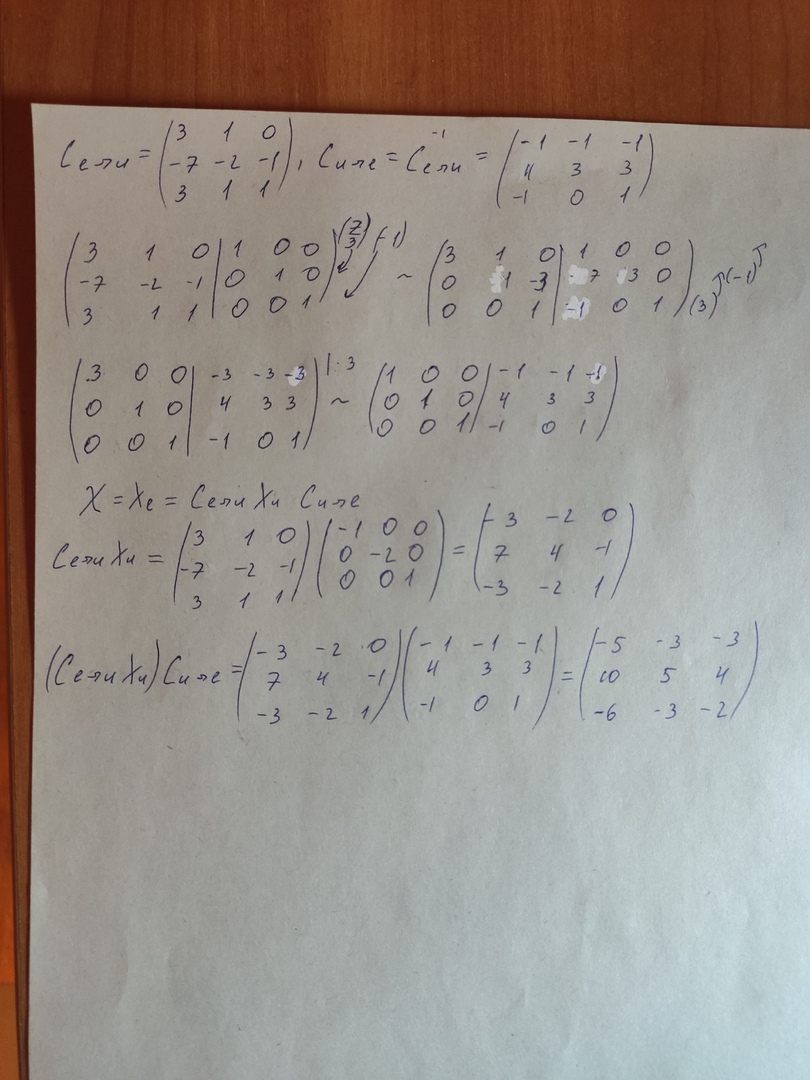 Cе→и = (3 1 0; -7 -2 -1; 3 1 1), Cи→е = Cе→и⁻¹ = (-1 -1 -1; 4 3 3; -1 0 1)
(3 1 0 | 1 0 0; -7 -2 -1 | 0 1 0; 3 1 1 | 0 0 1) (7/3) (-1) ~ (3 1 0 | 1 0 0; 0 1 -3 | 7 3 0; 0 0 1 | -1 0 1) (3) (-1)
(3 0 0 | -3 -3 -3; 0 1 0 | 4 3 3; 0 0 1 | -1 0 1) |:3 ~ (1 0 0 | -1 -1 -1; 0 1 0 | 4 3 3; 0 0 1 | -1 0 1)
X = Xe = Cе→и Xи Cи→е
Cе→и Xи = (3 1 0; -7 -2 -1; 3 1 1) (-1 0 0; 0 -2 0; 0 0 1) = (-3 -2 0; 7 4 -1; -3 -2 1)
(Cе→и Xи) Cи→е = (-3 -2 0; 7 4 -1; -3 -2 1) (-1 -1 -1; 4 3 3; -1 0 1) = (-5 -3 -3; 10 5 4; -6 -3 -2)